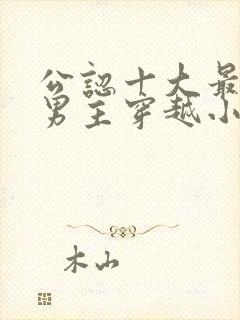 公認十大最
男主穿越小
木山